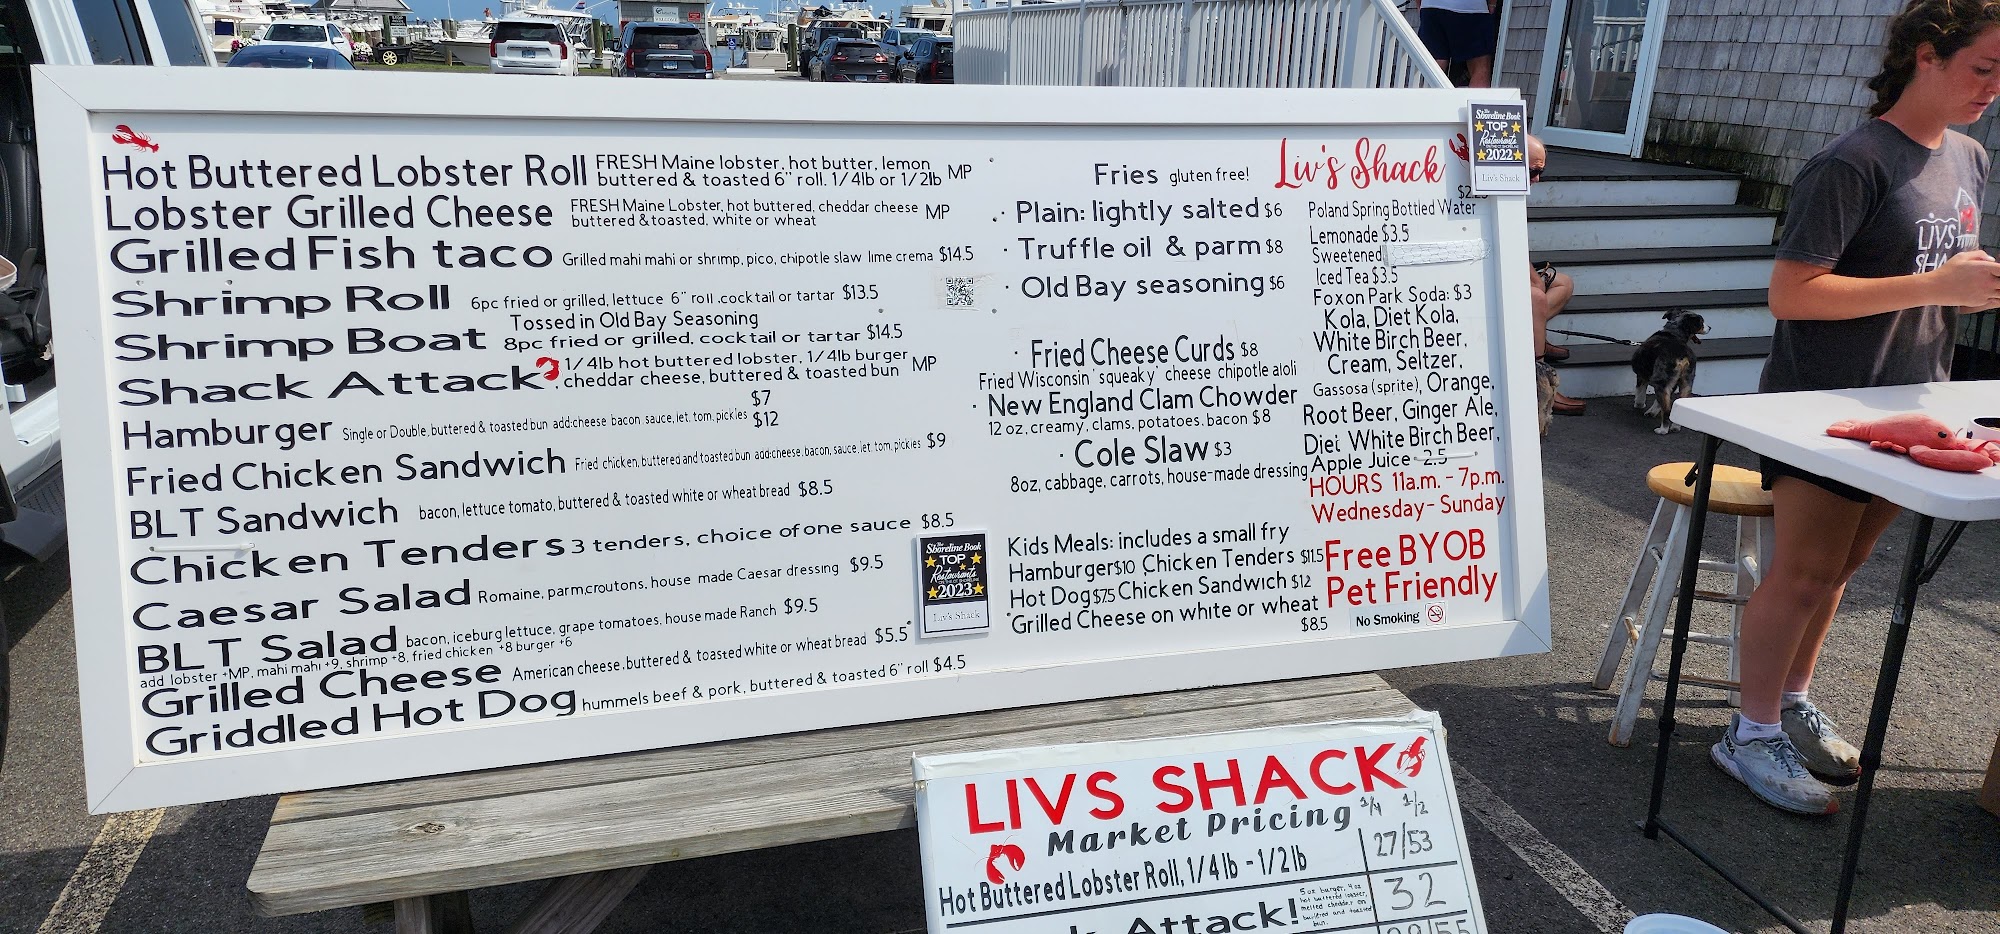 Hot Buttered Lobster Roll FRESH Maine lobster, hot butter, lemon
buttered & toasted 6" roll. 1/4lb or 1/2lb MP
Lobster Grilled Cheese FRESH Maine Lobster, hot buttered, cheddar cheese
buttered & toasted, white or wheat MP
Grilled Fish taco Grilled mahi mahi or shrimp, pico, chipotle slaw lime crema $14.5
Shrimp Roll 6pc fried or grilled, lettuce 6" roll .cocktail or tartar $13.5
Tossed in Old Bay Seasoning
Shrimp Boat 8pc fried or grilled, cocktail or tartar $14.5
Shack Attack 1/4lb hot buttered lobster, 1/4lb burger
cheddar cheese, buttered & toasted bun MP
$7
Hamburger Single or Double, buttered & toasted bun add:cheese bacon, sauce, let. tom, pickles $12
Fried Chicken Sandwich Fried chicken, buttered and toasted bun add:cheese, bacon, sauce, let. tom, pickles $9
BLT Sandwich bacon, lettuce tomato, buttered & toasted white or wheat bread $8.5
Chicken Tenders 3 tenders, choice of one sauce $8.5
Caesar Salad Romaine, parm,croutons, house made Caesar dressing $9.5
BLT Salad bacon, iceburg lettuce, grape tomatoes, house made Ranch $9.5
add lobster +MP, mahi mahi +9, shrimp +8, fried chicken +8 burger +6
Grilled Cheese American cheese, buttered & toasted white or wheat bread $5.5
Griddled Hot Dog hummels beef & pork, buttered & toasted 6" roll $4.5
Shoreline Book
TOP
Restaurants
2023
Liv's Shack
Fries gluten free!
· Plain: lightly salted $6
· Truffle oil & parm $8
· Old Bay seasoning $6
· Fried Cheese Curds $8
Fried Wisconsin 'squeaky' cheese chipotle aioli
· New England Clam Chowder
12 oz, creamy, clams, potatoes, bacon $8
· Cole Slaw $3
8oz, cabbage, carrots, house-made dressing
Kids Meals: includes a small fry
Hamburger $10 Chicken Tenders $11.5
Hot Dog $7.5 Chicken Sandwich $12
Grilled Cheese on white or wheat
$8.5
Liv's Shack
Poland Spring Bottled Water
Lemonade $3.5
Sweetened
Iced Tea $3.5
Foxon Park Soda: $3
Kola, Diet Kola,
White Birch Beer,
Cream, Seltzer,
Gassosa (sprite), Orange,
Root Beer, Ginger Ale,
Diet White Birch Beer,
Apple Juice 2.5
HOURS 11a.m. - 7p.m.
Wednesday- Sunday
Free BYOB
Pet Friendly
No Smoking
The Shoreline Book
TOP
Restaurants
2022
Liv's Shack
LIV'S
LIVS SHACK
Market Pricing 1/4 1/2
Hot Buttered Lobster Roll, 1/4lb - 1/2lb 27/53
Attack! 5 oz burger, 4 oz
hot buttered lobster,
melted cheddar on
buttered and toasted
bun. 32